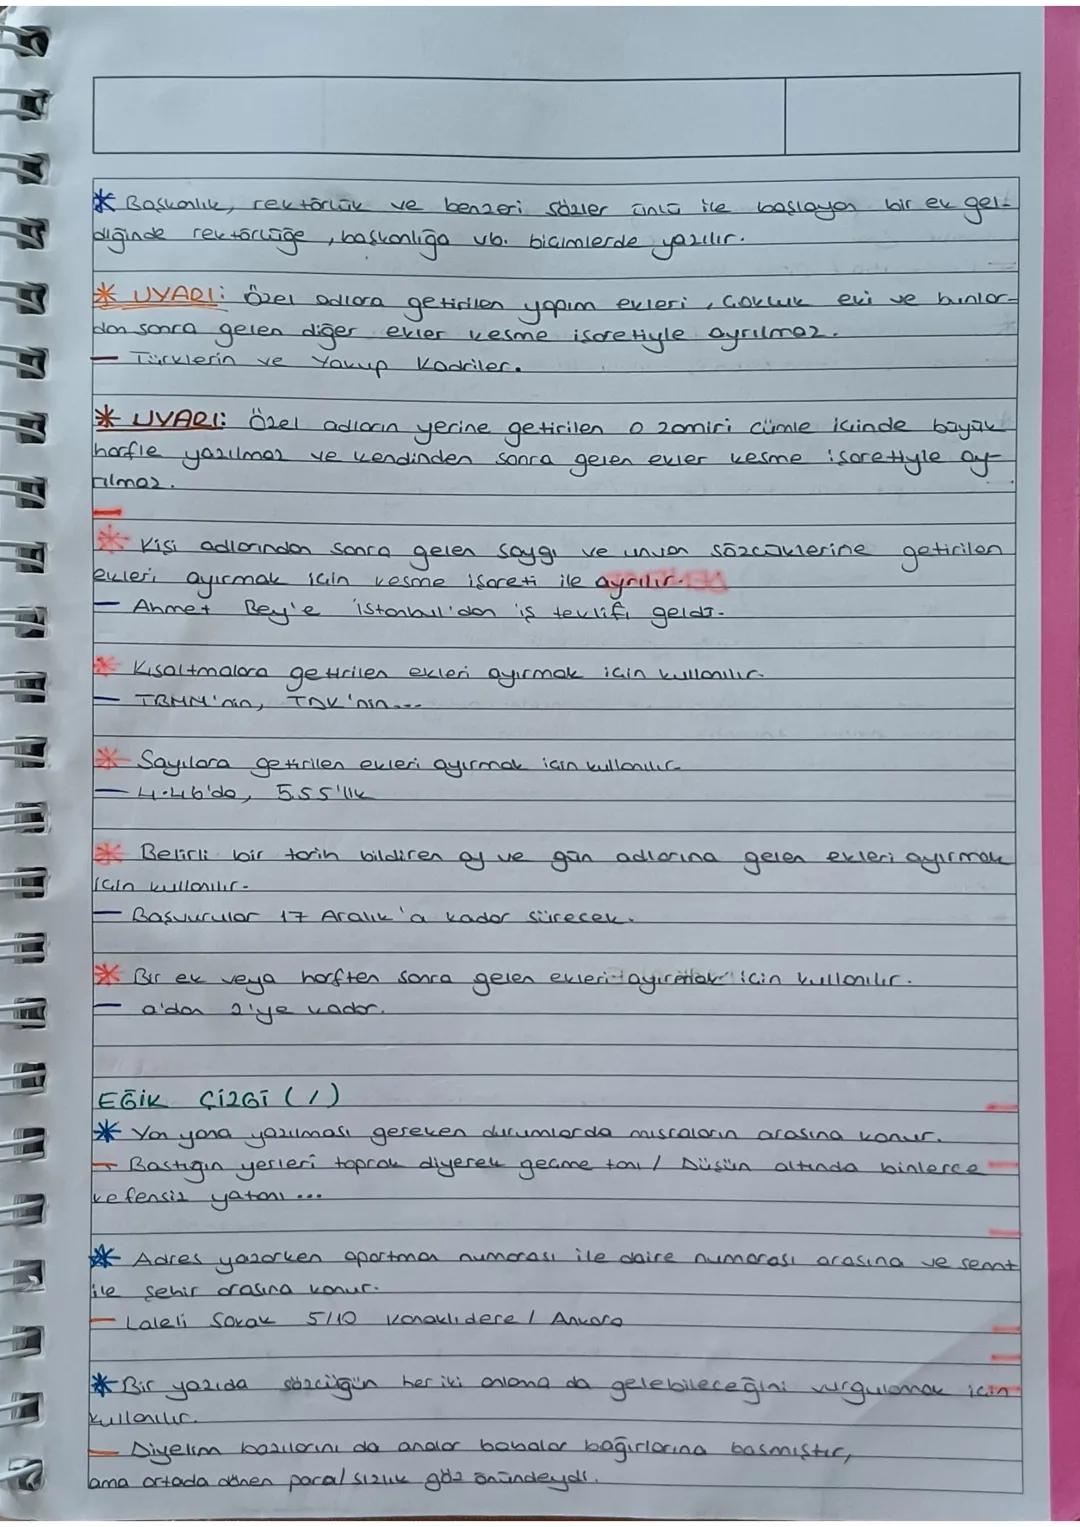 * Başkanlık, rektörlük ve benzeri sözler ünlü ile başlayan bir ek gel-
diğinde rektörlüğe, başkanlığa vb. biçimlerde yazılır.
* UYARI: Özel adlara getirilen yapım ekleri, çokluk eki ve bunlar-
dan sonra gelen diğer ekler kesme işaretiyle ayrılmaz.
— Türklerin ve Yakup Kadriler.
* UYARI: Özel adların yerine getirilen o zamiri cümle içinde büyük
harfle yazılmaz ve kendinden sonra gelen ekler kesme işaretiyle ay-
rılmaz.
* Kişi adlarından sonra gelen saygı ve unvan sözcüklerine getirilen
ekleri ayırmak için kesme işareti ile ayrılır.
— Ahmet Bey'e İstanbul'dan iş teklifi geldi.
* Kısaltmalara getirilen ekleri ayırmak için kullanılır.
— TBMM'nin, TDK'nin...
* Sayılara getirilen ekleri ayırmak için kullanılır.
— 4.46'da, 5.55'lik
* Belirli bir tarih bildiren ay ve gün adlarına gelen ekleri ayırmak
için kullanılır.
— Başvurular 17 Aralık'a kadar sürecek.
* Bir ek veya harften sonra gelen ekleri ayırmak için kullanılır.
— a'dan z'ye kadar.
EĞİK ÇİZGİ (/)
* Yan yana yazılması gereken durumlarda mısraların arasına konur.
— Bastığın yerleri toprak diyerek geçme tanı / Düşün altında binlerce
kefensiz yatanı...
* Adres yazarken apartman numarası ile daire numarası arasına ve semt
ile şehir arasına konur.
— Laleli Sokak 5/10 Kavaklıdere / Ankara
* Bir yazıda sözcüğün her iki anlama da gelebileceğini vurgulamak için
kullanılır.
— Diyelim bazılarını da analar babalar bağırlarına basmıştır,
ama ortada dönen paral sızlık göz önündeydi.